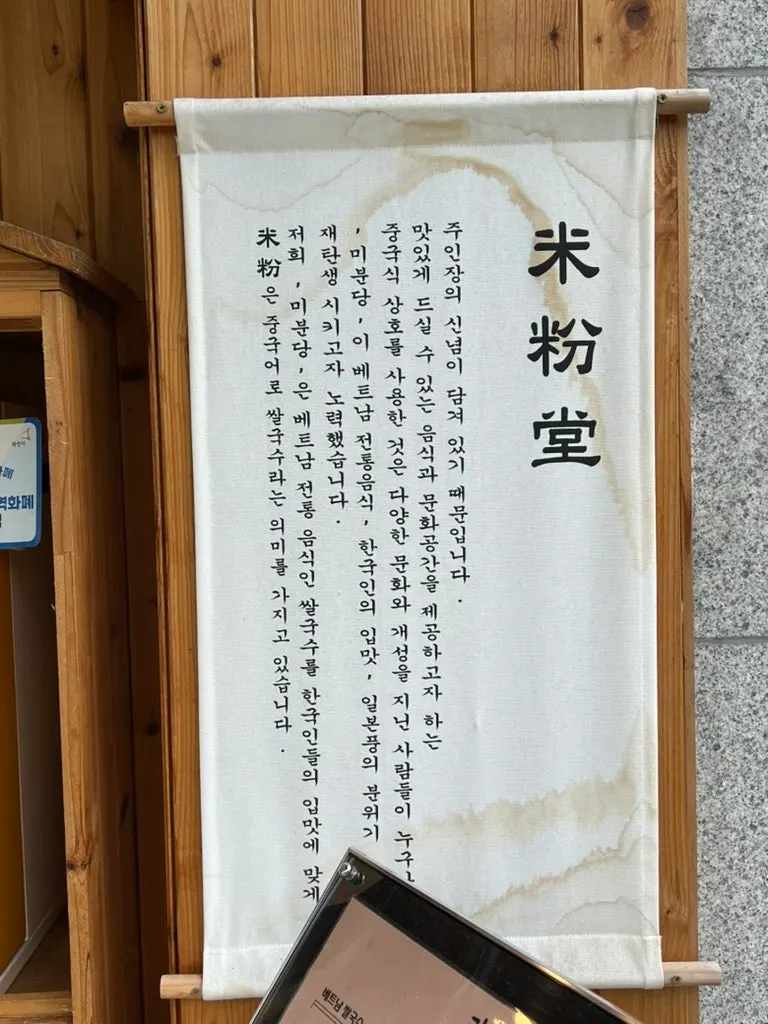 米粉堂
米粉은 중국어로 쌀국수라는 의미를 가지고 있습니다.
저희 '미분당'은 베트남 전통 음식인 쌀국수를 한국인들의 입맛에 맞게
재탄생 시키고자 노력했습니다.
'미분당'이 베트남 전통음식, 한국인의 입맛, 일본풍의 분위기
중국식 상호를 사용한 것은 다양한 문화와 개성을 지닌 사람들이
맛있게 드실 수 있는 음식과 문화공간을 제공하고자 하는
주인장의 신념이 담겨 있기 때문입니다.
베트남